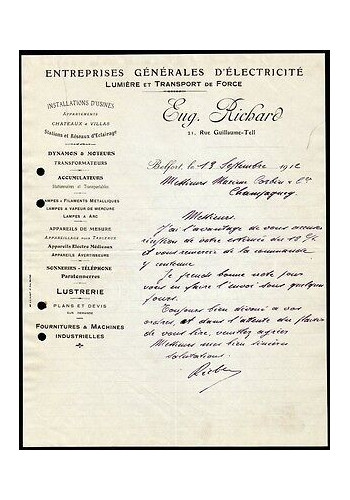 ENTREPRISES GÉNÉRALES D'ÉLECTRICITÉ
LUMIÈRE ET TRANSPORT DE FORCE
INSTALLATIONS D'USINES
APPARTEMENTS
CHATEAUX & VILLAS
Stations et Réseaux d'Eclairage
DYNAMOS & MOTEURS
TRANSFORMATEURS
ACCUMULATEURS
Stationnaires et Transportables
LAMPES A FILAMENTS MÉTALLIQUES
LAMPES A VAPEUR DE MERCURE
LAMPES A ARC
APPAREILS DE MESURE
APPAREILLAGE POUR TABLEAUX
Appareils Electro Médicaux
APPAREILS AVERTISSEURS
SONNERIES - TÉLÉPHONE
Paratonnerres
LUSTRERIE
PLANS ET DEVIS
SUR DEMANDE
FOURNITURES & MACHINES
INDUSTRIELLES
Eug. Richard
21, Rue Guillaume-Tell
Belfort, le 13 Septembre 1912
Messieurs Maxime & Cie
Champagney
Messieurs.
J'ai l'avantage de vous accuser
réception de votre estimée du 12 Ct
et vous remercie de la commande
y contenue
Je prends bonne note pour
vous en faire l'envoi sous quelques
jours.
Toujours bien dévoué à vos
ordres, et dans l'attente du plaisir
de vous lire, veuillez agréer
Messieurs mes bien sincères
salutations.